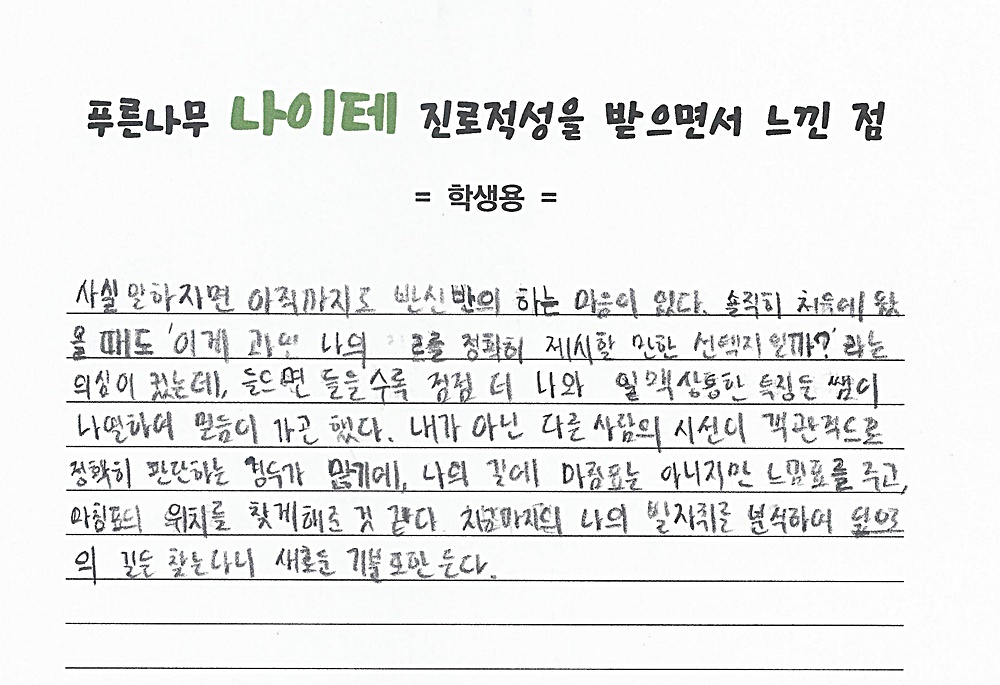 푸른나무 나이테 진로적성을 받으면서 느낀 점
= 학생용 =
사실 말하자면 아직까지도 반신반의 하는 마음이 있다. 솔직히 처음에 왔
을 때도 '이게 과연 나의 를 정확히 제시할 만한 선택지일까?' 라는
의심이 컸는데, 들으면 들을수록 점점 더 나와 일맥상통한 특징을 쌤이
나열하여 믿음이 가곤 했다. 내가 아닌 다른 사람의 시선이 객관적으로
정확히 판단하는 경우가 많기에, 나의 길에 마침표는 아니지만 느낌표를 주고,
마침표의 위치를 찾게해준 것 같다. 지금까지의 나의 발자취를 분석하여 앞으로
의 길을 찾는다니 새로운 기분 또한 든다.